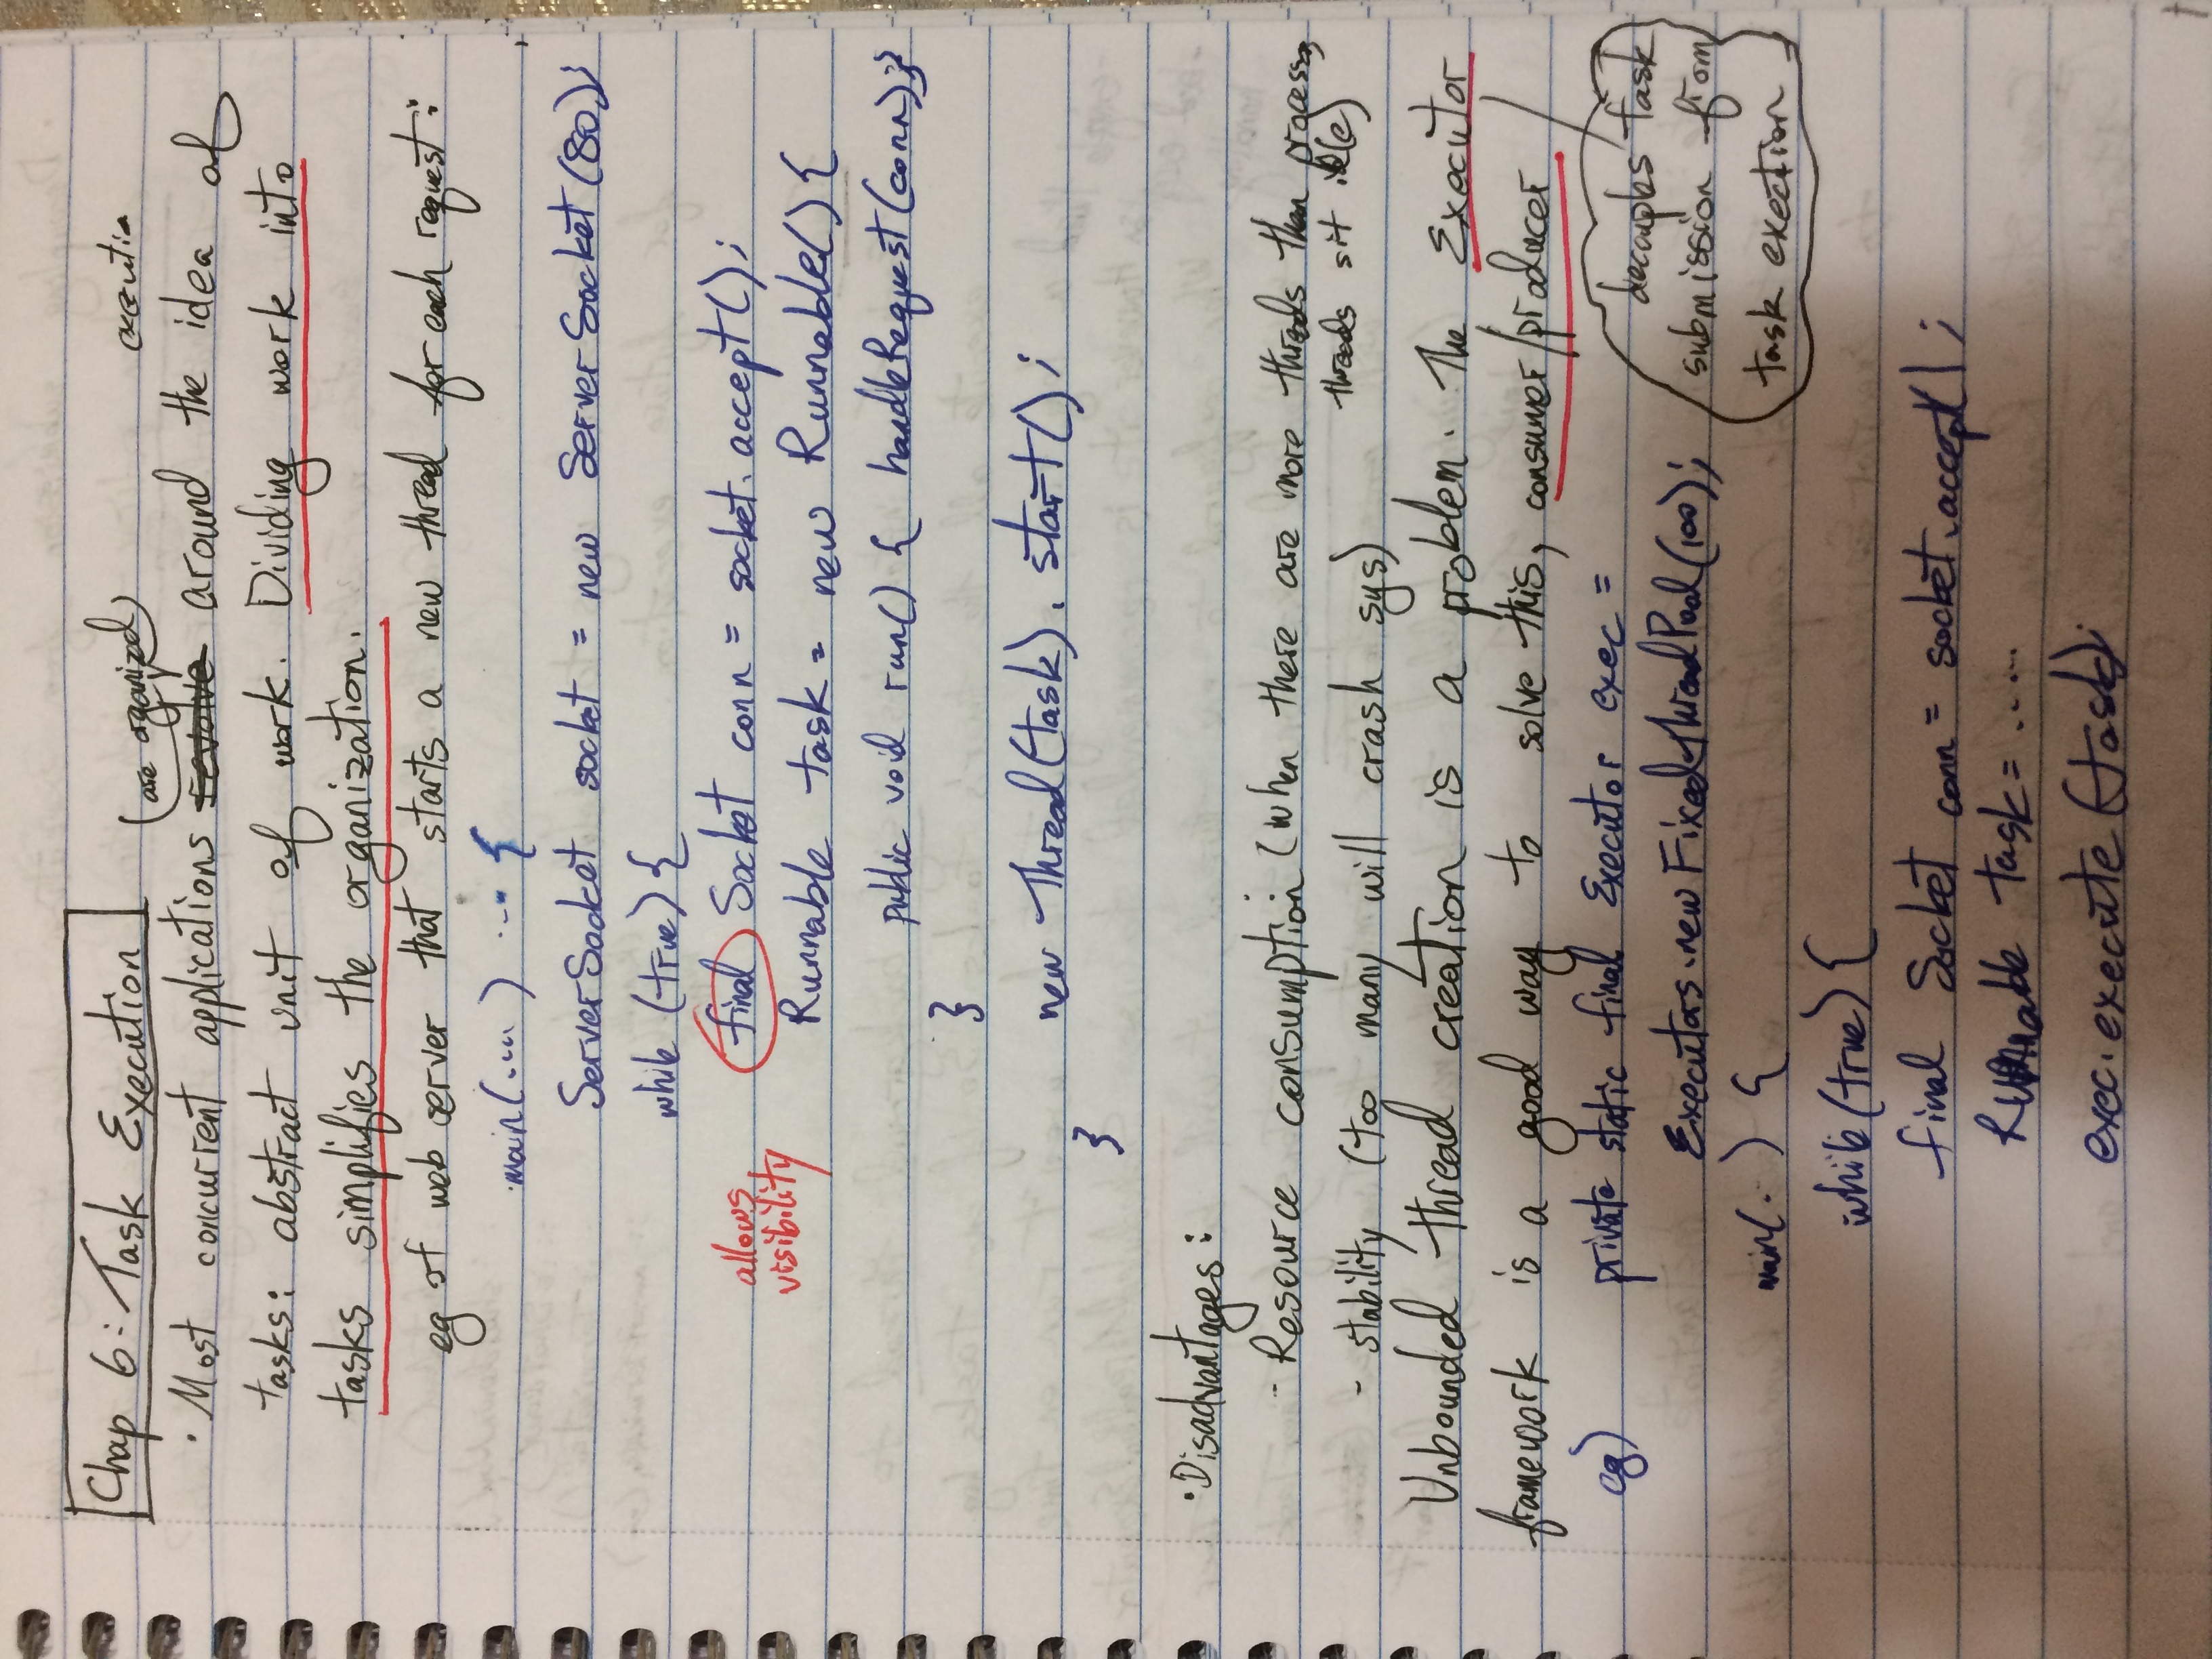 Chap 6: Task Execution
(are organized)
executio
· Most concurrent applications revolve around the idea of
tasks: abstract unit of work. Dividing work into
tasks simplifies the organization.
eg of web server that starts a new thread for each request:
main(....) ... {
ServerSocket socket = new ServerSocket(80);
while (true) {
allows
visibility
final Socket conn = socket.accept();
Runnable task = new Runnable() {
public void run() { handleRequest(conn);}
}
new Thread(task).start();
}
· Disadvantages:
- Resource consumption (when there are more threads than process,
threads sit idle)
- stability (too many will crash sys)
Unbounded thread creation is a problem. The Executor
framework is a good way to solve this, consumer/producer
eg) private static final Executor exec =
Executors.newFixedThreadPool(100);
decouples task
submission from
task exection
main(..) {
while(true) {
final Socket conn = socket.accept();
Runnable task = ......
exec.execute(task);